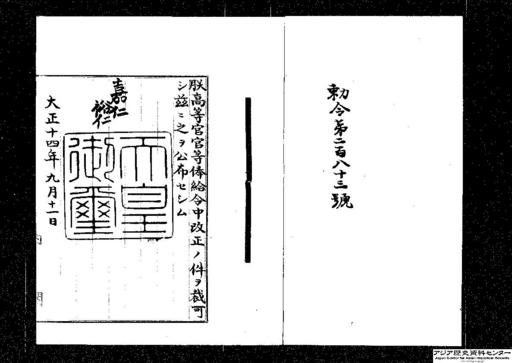 勅令第二百八十三號
朕高等官官等俸給令中改正ノ件ヲ裁可
シ茲ニ之ヲ公布セシム
嘉仁
裕仁
天皇
御璽
大正十四年九月十一日
アジア歴史資料センター
Japan Center for Asian Historical Records